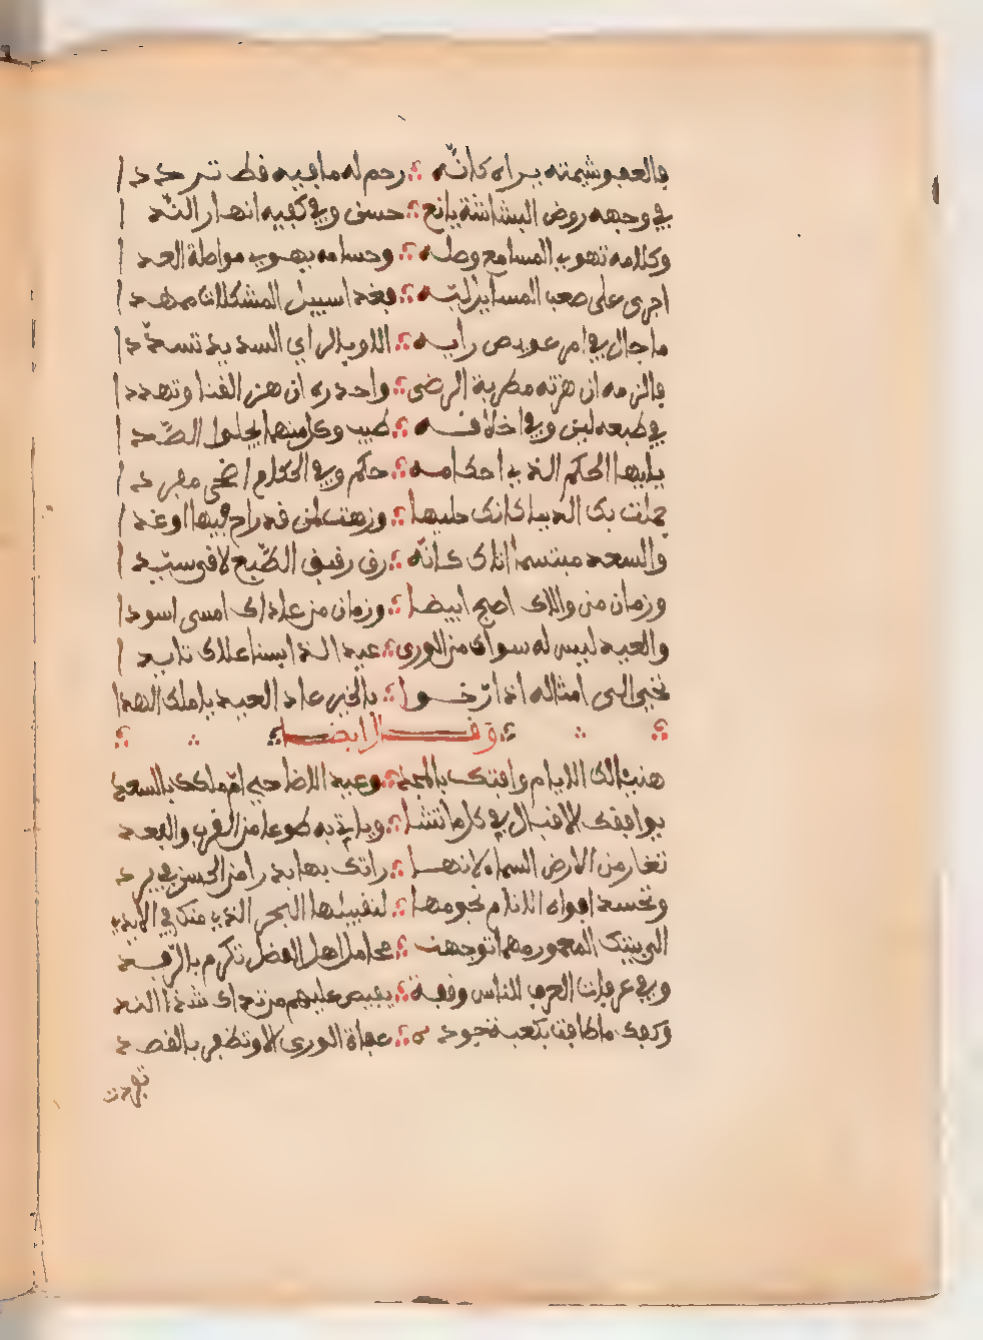 والعفو شيمته يراه كانّه ؞ رحم له ما فيه قط تردد ا
في وجهه روض البشاشة يانع ؞ حسن وفي كفيه انهار النّد ا
وكلامه تهوى المسامع وصله ؞ وحسامه يهوى مواصلة العد ا
اجرى على صعب المسآيل لبّه ؞ فغدا سبيل المشكلات ممهد ا
ما جال في امر عويص رأيه ؞ الا وبالراي السديد تسدّد ا
في طبعه لين وفي اخلاقه ؞ طيب وكل منهما يجلوا الصّد ا
يا ايها الحكم الذي احكامه ؞ حكم وفي الحكام اضحى مفرد ا
جملت بك الدنيا كانك حليها ؞ وزهت لمن قد راح فيها او غد ا
والسعد مبتسما اتاك كانّه ؞ رق رقيق الطّبع لاقى سيّد ا
وزمان من والاك اصبح ابيضا ؞ وزمان من عاداك امسى اسود ا
والعيد ليس له سواك من الورى ؞ عيد الذا بسنا علاك تايد ا
نحيى الى امثاله اذ ارّخوا ؞ بالخير عاد العيد يا ملك الندا
وقال ايضا
هنيئا لك الايام وافتك بالمجد ؞ وعيد الاضاحي امّ ملكك بالسعد
يوافقك الاقبال في كل ما تشا ؞ وياتي به طوعا من القرب والبعد
تغار من الارض السماء لانها ؞ راتك بها بدرا من الحسن في برد
وتحسد افواه الانام نجومها ؞ لتقبيلها البحر الذي منك في الايدي
الى بيتك المعمور مهما توجهت ؞ محامل اهل الفضل تكرم بالرّفد
وفي عرفات العرف للناس وقفة ؞ يفيض عليهم من نداك شذا الند
وكفك ما طافت بكعبة جود ؞ عفاة الورى الا وتظفر بالقصد